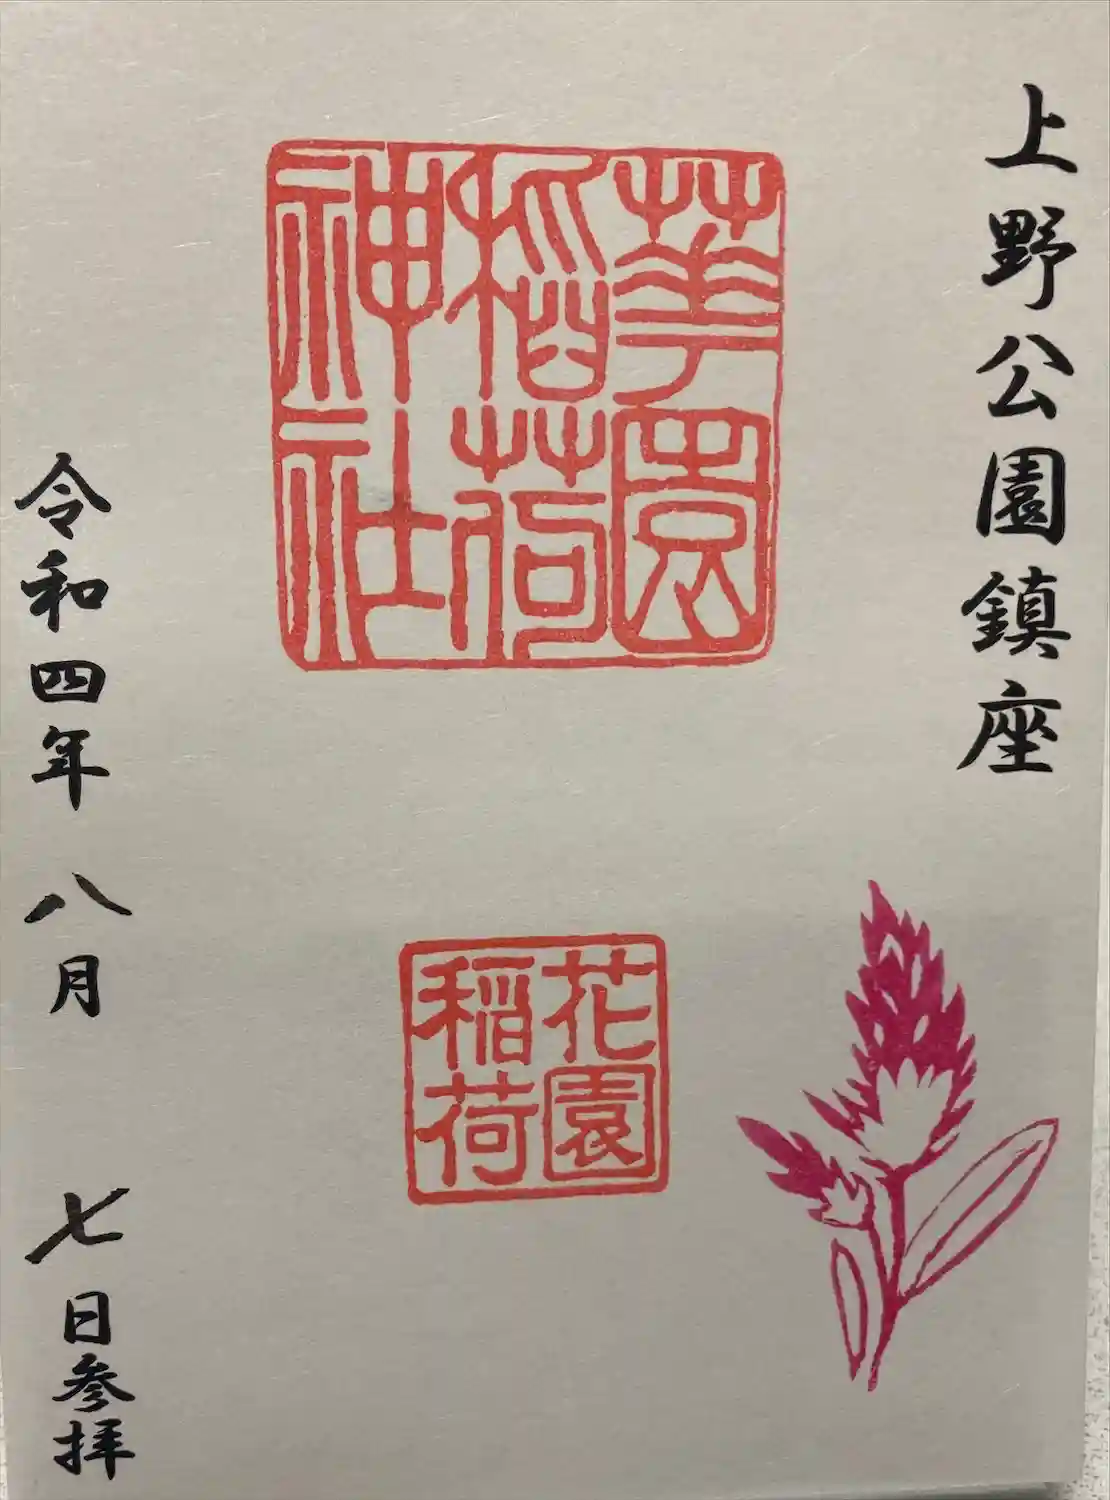 上野公園鎮座
華園稲荷神社
花園稲荷
令和四年八月七日参拝